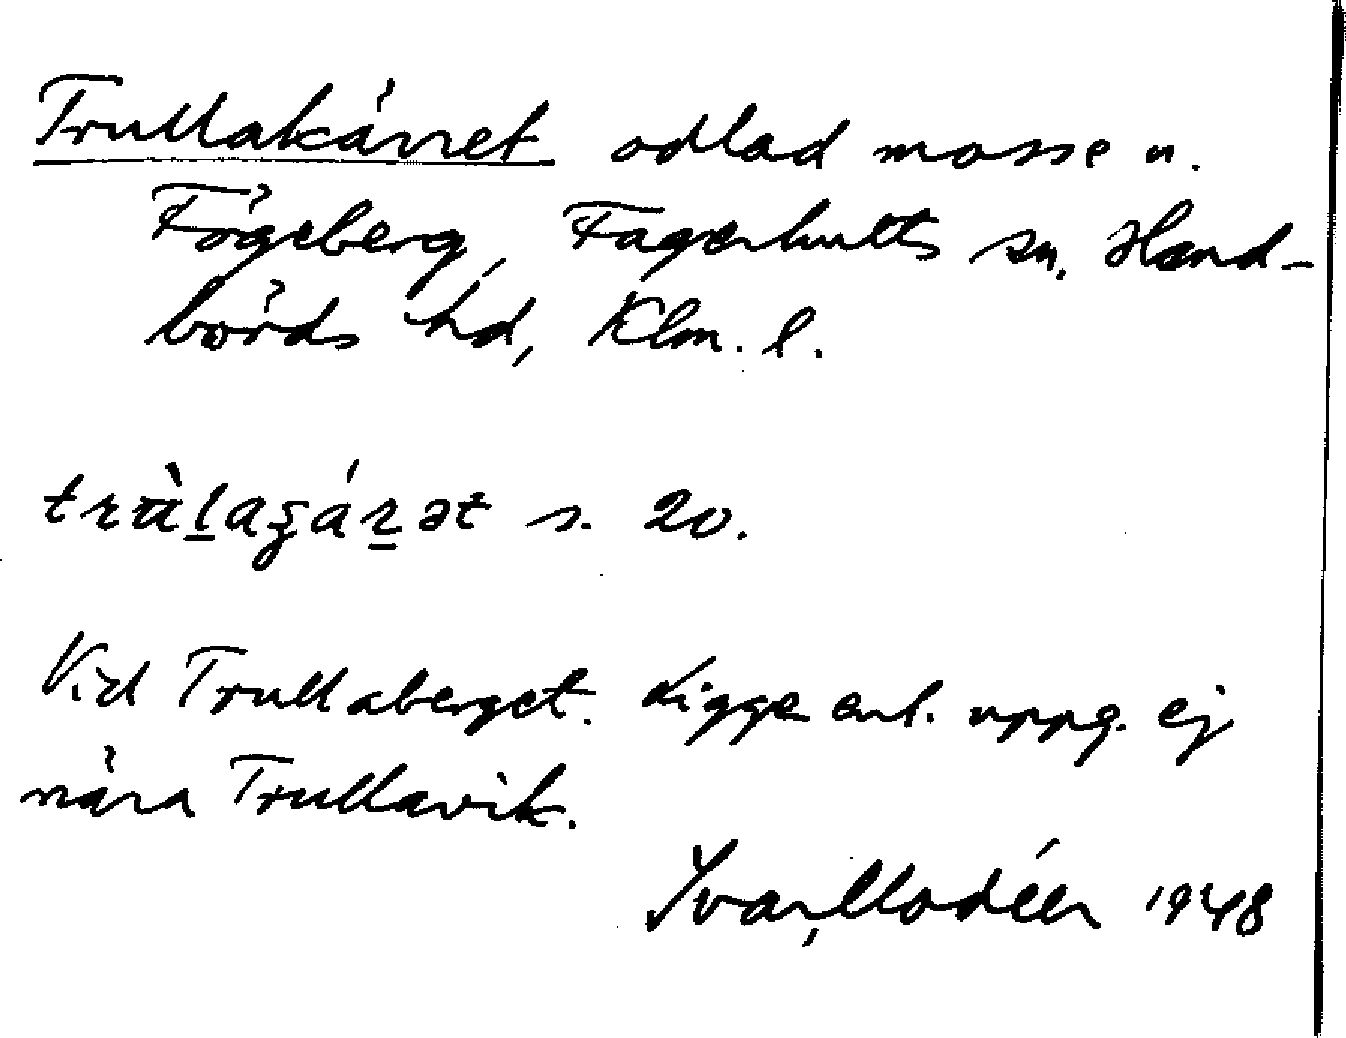 Trullakärret odlad mosse u.
Fögeberg, Fagerhults sn. Hand-
börds hd, Klm. l.
s. 20.
Vid Trullaberget. Ligger enl. uppg. ej
nära Trullavik.
Ivar Modéer 1948